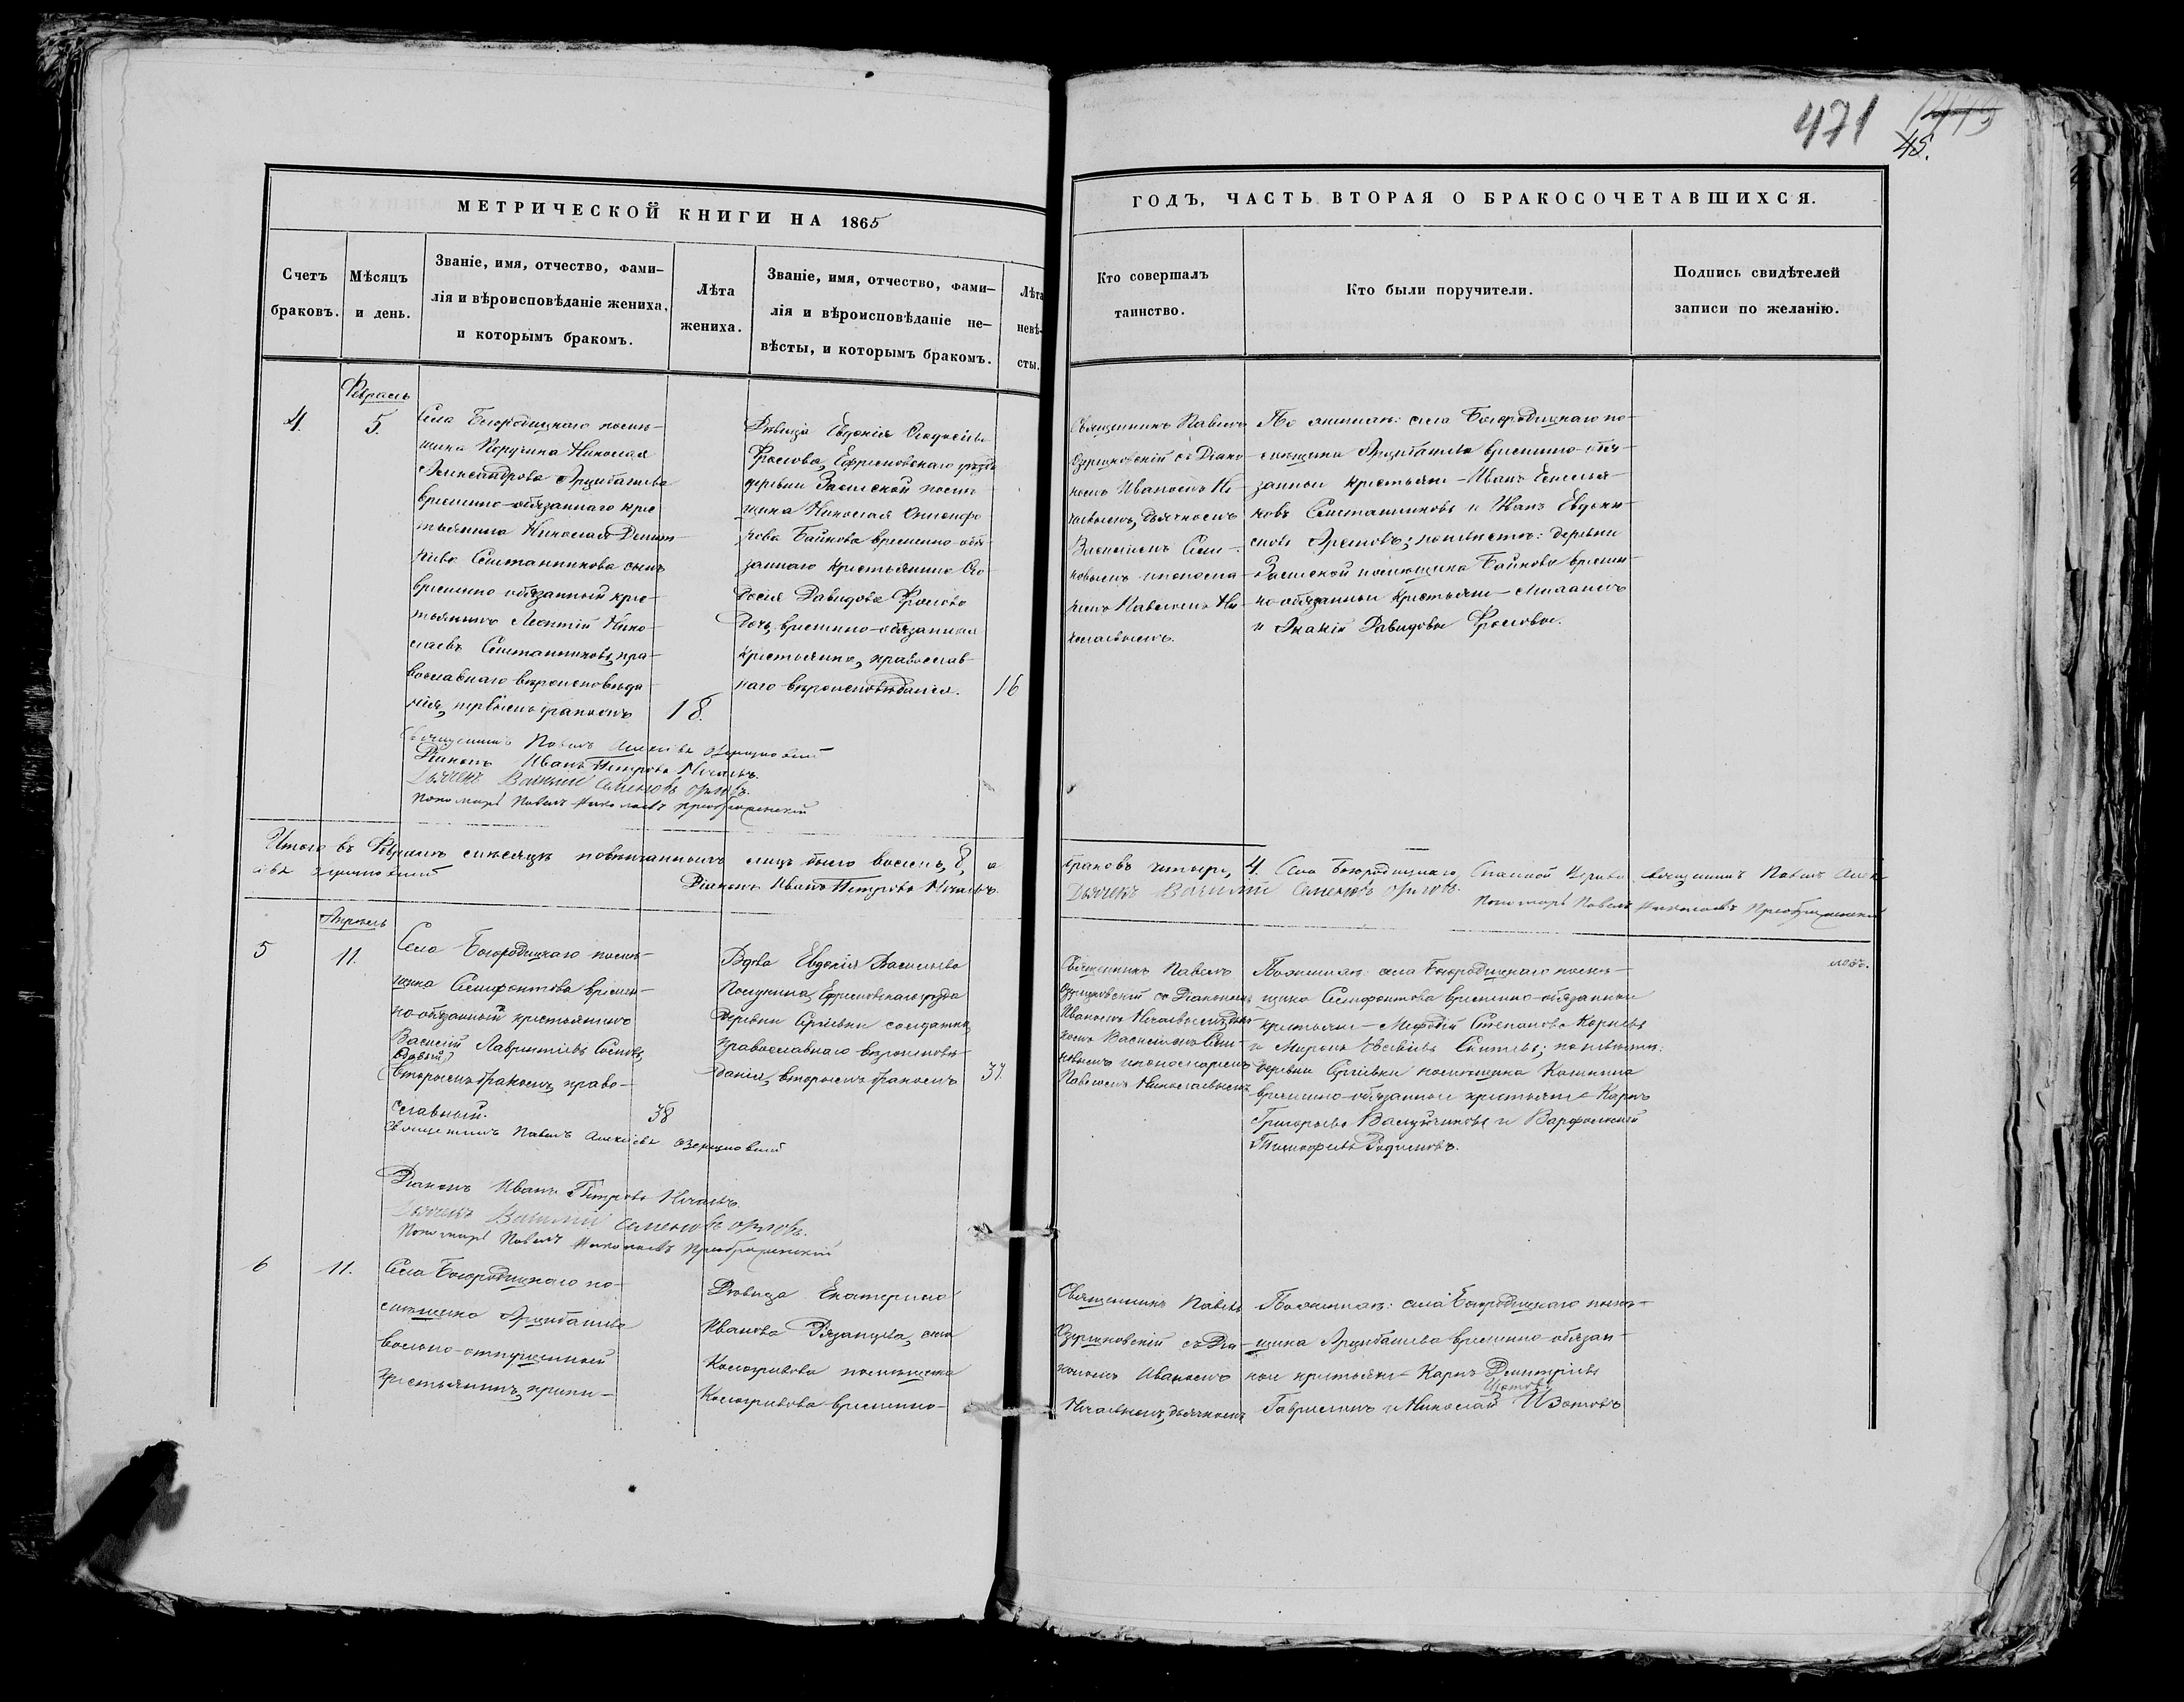 471
45.
МЕТРИЧЕСКОЙ КНИГИ НА 1865
ГОДЪ, ЧАСТЬ ВТОРАЯ О БРАКОСОЧЕТАВШИХСЯ.
Счетъ
браковъ.
Мѣсяцъ
и день.
Званіе, имя, отчество, фами-
лія и вѣроисповѣданіе жениха,
и которымъ бракомъ.
Лѣта
жениха.
Званіе, имя, отчество, фами-
лія и вѣроисповѣданіе не-
вѣсты, и которымъ бракомъ.
Лѣта
невѣ-
сты.
Кто совершалъ
таинство.
Кто были поручители.
Подпись свидѣтелей
записи по желанію.
Февраль
4.
5.
Села Богородицкаго помѣ-
щика Поручика Николая
Александрова Арцибашева
временно-обязаннаго крес
тьянина Николая Демент
ьева сынъ
временно обязанный крес-
тьянинъ Леонтій Нико-
лаевъ пра-
вославнаго вѣроисповѣда
нія, первымъ бракомъ
18.
Дѣвица Евдокія Ѳеодосіева
Фролова, Ефремовскаго уѣзда
деревни помѣ-
щика Николая
Байкова временно-обя-
заннаго крестьянина Ѳео-
досія Давидова Фролова
дочь, временно-обязанная
крестьянка, православ-
наго вѣроисповѣданія.
16
Священникъ Павелъ
Озерковскій съ Діако-
номъ Иваномъ Не-
чаевымъ, дьячкомъ
Василіемъ Семе-
новымъ и понома-
ремъ Павломъ Ни-
колаевымъ.
По женихѣ: села Богородицкаго по-
мѣщика Арцибашева временно-обя-
занные крестьяне - Иванъ
и Иванъ Евдоки-
мовъ по невѣстѣ: деревни
помѣщика Байкова времен-
но-обязанные крестьяне -
и Акакій Давидовы Фроловы.
Священникъ Павелъ Алексѣевъ Озерковскій
Діаконъ Иванъ Петровъ Нечаевъ.
Дьячекъ Василій Семеновъ Орловъ.
Пономарь Павелъ Николаевъ Преображенскій
Итого въ Февралѣ мѣсяцѣ повѣнчанныхъ лицъ было восемь, 8, а
браковъ четыре, 4. Села Богородицкаго, Спасской Церкви священникъ Павелъ Алек
сѣевъ Озерковскій Діаконъ Иванъ Петровъ Нечаевъ.
Дьячекъ Василій Семеновъ Орловъ.
Пономарь Павелъ Николаевъ Преображенскій
Апрѣль
5
11.
Села Богородицкаго помѣ-
щика времен-
но-обязанный крестьянинъ
Василій Лаврентіевъ
вдовый
вторымъ бракомъ, право-
славный.
38
Вдова Евдокія Васильева
Ефремовскаго уѣзда
деревни Сергѣевки солдатка,
православнаго вѣроисповѣ-
данія, вторымъ бракомъ
37.
Священникъ Павелъ
Озерковскій съ Діакономъ
Иваномъ Нечаевымъ, дья-
комъ Василіемъ Семе-
новымъ и пономаремъ
Павломъ Николаевымъ
По женихѣ: села Богородицкаго помѣ-
щика временно-обязанные
крестьяне - Мефодій Степановъ
и Миронъ по невѣстѣ:
деревни Сергѣевки помѣщика
временно-обязанные крестьяне - Карпъ
Григорьевъ и Варфоломей
Тимофѣевъ Родіоновъ.
Священникъ Павелъ Алексѣевъ Озерковскій
Діаконъ Иванъ Петровъ Нечаевъ.
Дьячекъ Василій Семеновъ Орловъ.
Пономарь Павелъ Николаевъ Преображенскій
6
11.
Села Богородицкаго по-
мѣщика Арцибашева
вольно-отпущенный
крестьянинъ, припи-
Дѣвица Екатерина
Иванова Рязанцева, села
Кологривова помѣщика
Кологривова временно-
Священникъ Павелъ
Озерковскій съ Діа-
кономъ Иваномъ
Нечаевымъ, дьячкомъ
По женихѣ: села Богородицкаго помѣ-
щика Арцибашева временно-обязан-
ные крестьяне - Карпъ Дмитріевъ
и Николай